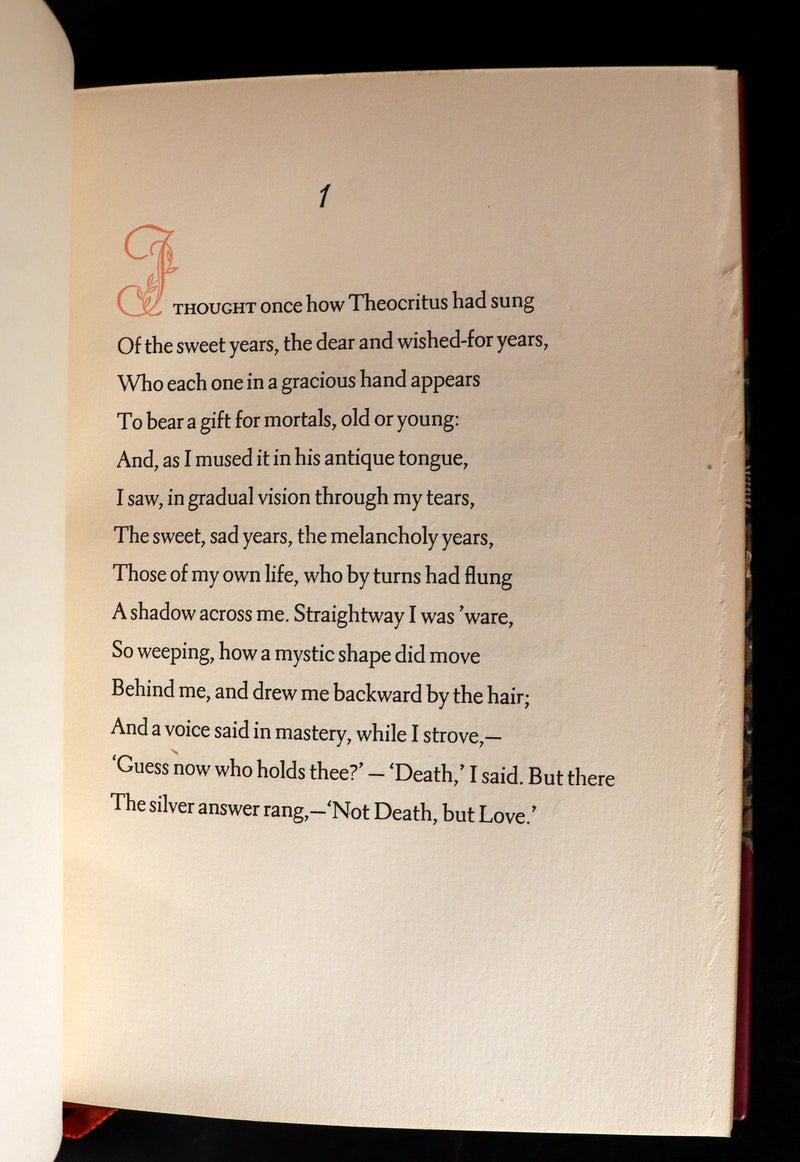 1
I THOUGHT once how Theocritus had sung
Of the sweet years, the dear and wished-for years,
Who each one in a gracious hand appears
To bear a gift for mortals, old or young:
And, as I mused it in his antique tongue,
I saw, in gradual vision through my tears,
The sweet, sad years, the melancholy years,
Those of my own life, who by turns had flung
A shadow across me. Straightway I was ’ware,
So weeping, how a mystic shape did move
Behind me, and drew me backward by the hair;
And a voice said in mastery, while I strove,—
‘Guess now who holds thee?’ — ‘Death,’ I said. But there
The silver answer rang,—‘Not Death, but Love.’